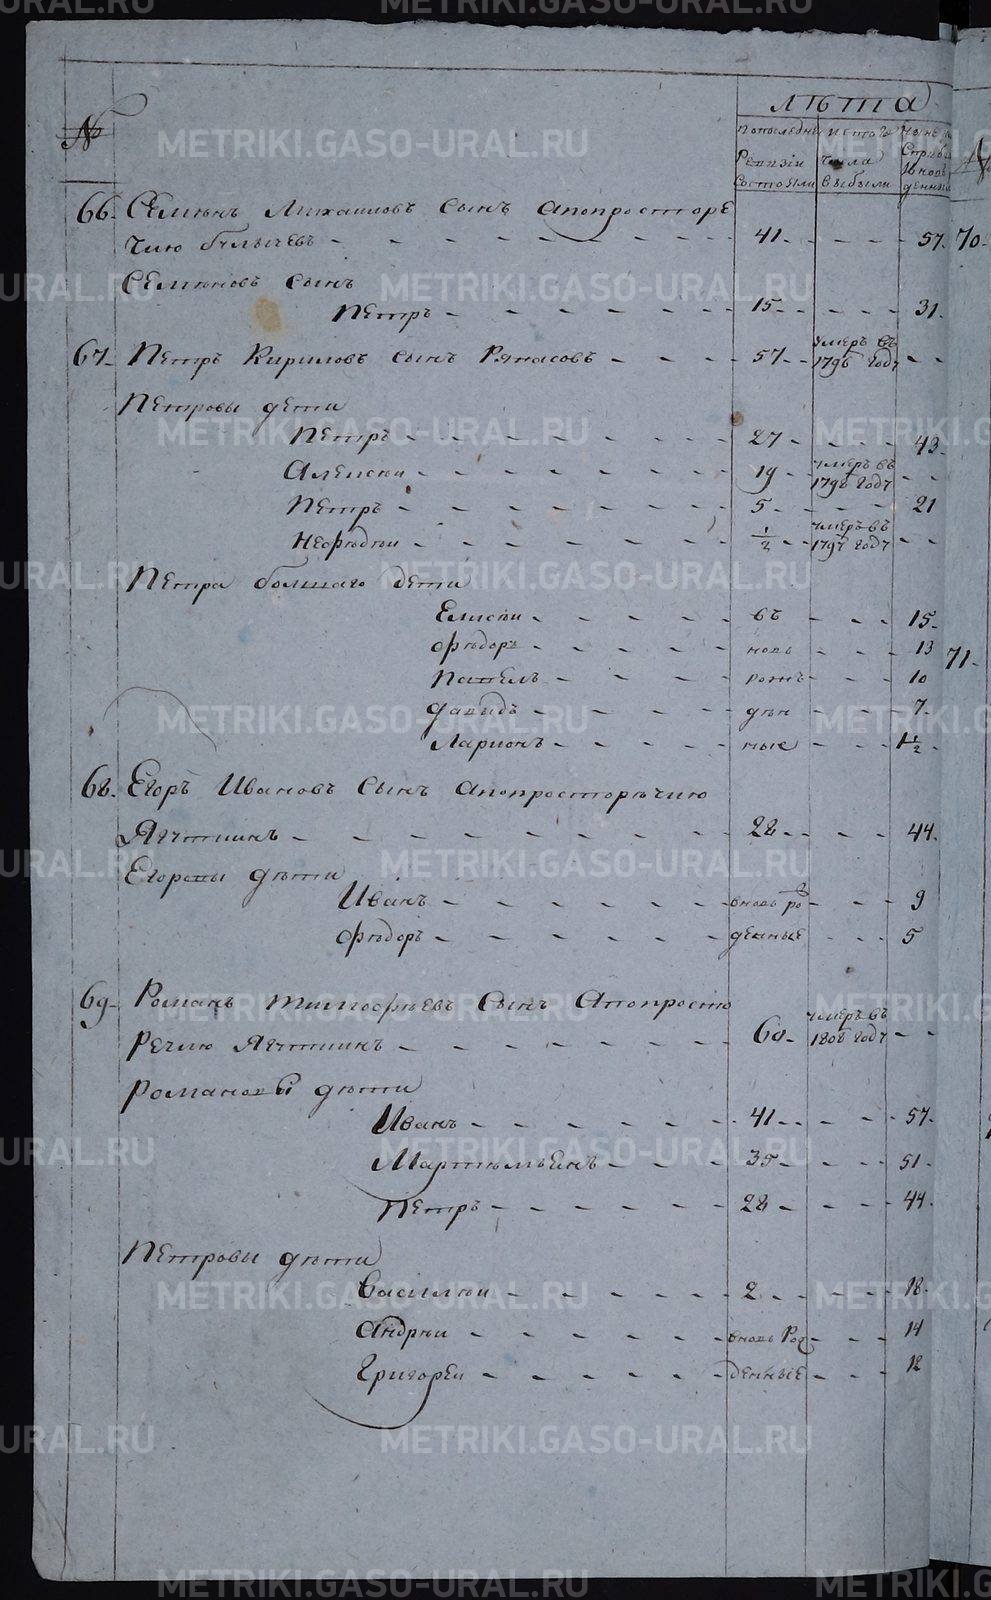 METRIKI.GASO-URAL.RU
№
лѣта
попоследней
Ревизiи
состояли
исто го
числа
выбыли
ныне
66. Семенъ Михаиловъ сынъ апопросторе
чию булычевъ 41. 57.
Семеновъ сынъ
Петръ 15. 31.
67. Петръ Кириловъ сынъ умеръ въ
57 1796 году
Петровы дети
Петръ 27 43.
Алексеи 19 умеръ въ
1796 году
Петръ 5. 21
½ умеръ въ
1797 году
Петра болшаго дети
Елисеи въ 15.
Фѣдоръ новь 13
Павелъ рожъ 10
Давидъ дѣн 7.
Ларионъ ные 1½.
68. Егоръ Ивановъ Сынъ апопросторѣчию
Ягуткинъ 28. 44.
Егоровы дѣти
Иванъ вновь ро 9
Фѣдоръ денные 5
69. Романъ тимофѣевъ Сынъ Апопросто
речию Ягуткинъ 60. умеръ въ
1808 году
Романовы дѣти
Иванъ 41. 57.
Мартемьенъ 35 51.
Петръ 28 44.
Петровы дѣти
Василеи 2. 18.
Андрѣи вновь Рож 14
Григореи денные 12
70.
71.